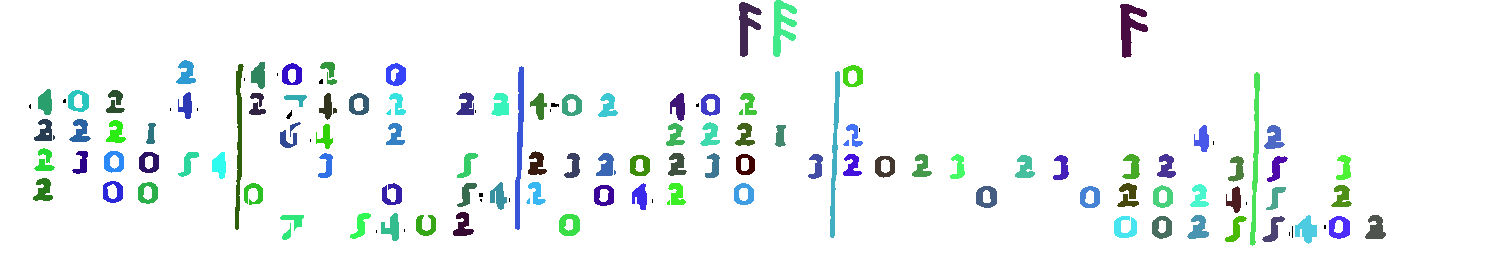 2 | 4 0 2 0 | | 0 |
4 0 2 4 | 2 7 4 0 2 2 2 | 4 0 2 4 0 2 | |
2 2 2 1 | 6 4 2 | 2 2 2 1 | 2 4 | 2
2 3 0 0 5 4 | 3 5 | 2 3 2 0 2 3 0 3 | 2 0 2 3 2 3 3 2 3 | 5 3
2 0 0 | 0 0 5 4 | 2 0 4 2 0 | 0 0 2 0 2 4 | 5 2
| 7 5 4 0 2 | 0 | 0 0 2 5 | 5 4 0 2